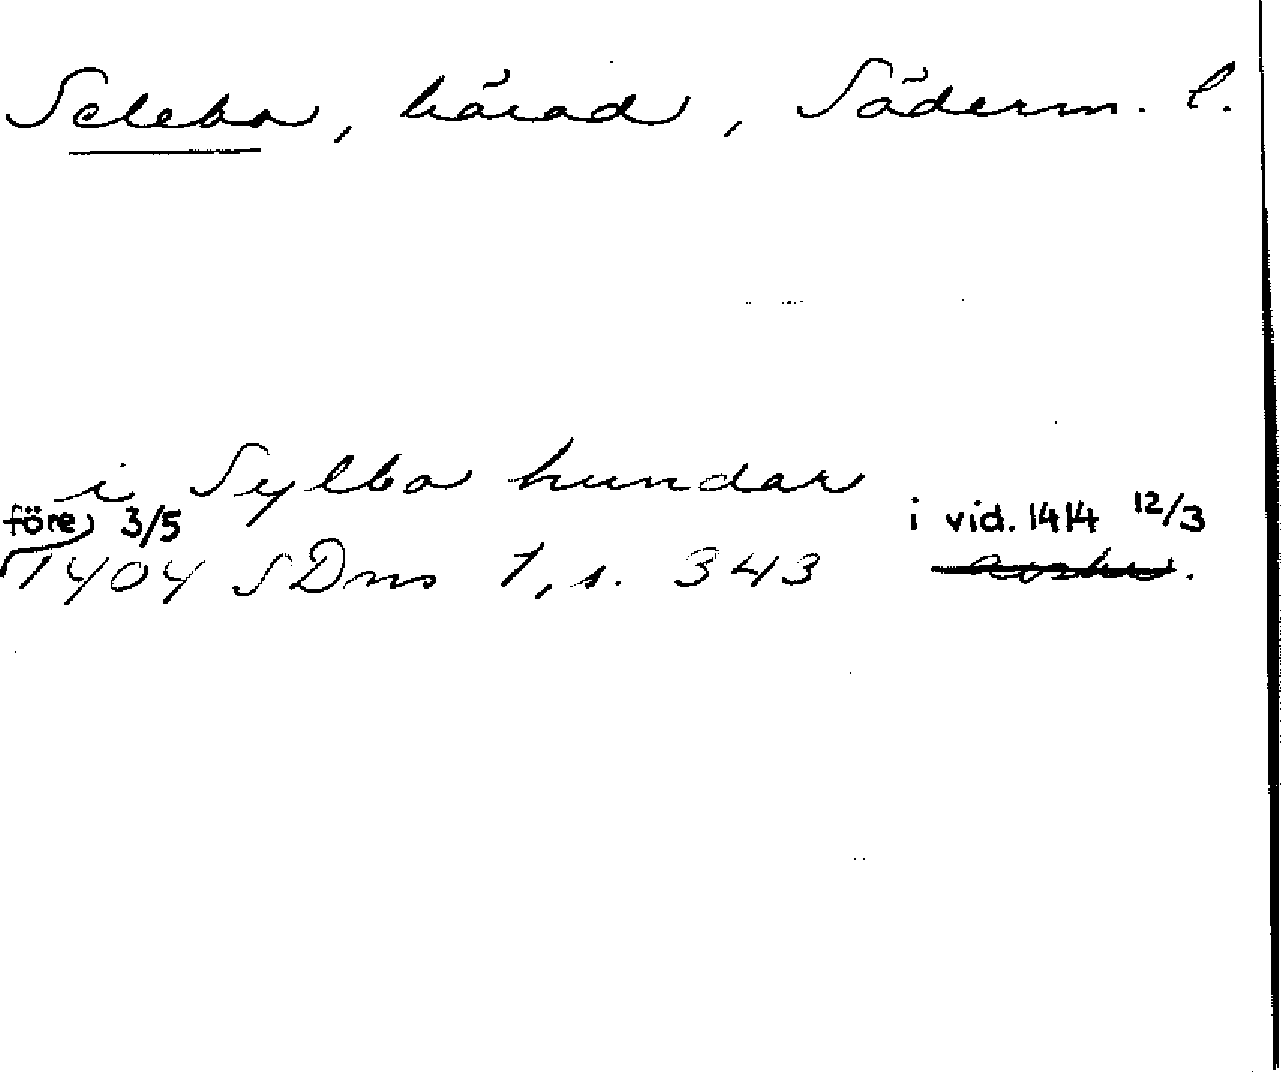 Selebo, härad, Söderm. l.
i Sylbo hundar
före 3/5 i vid. 1414 12/3
1404 SDns 1, s. 343